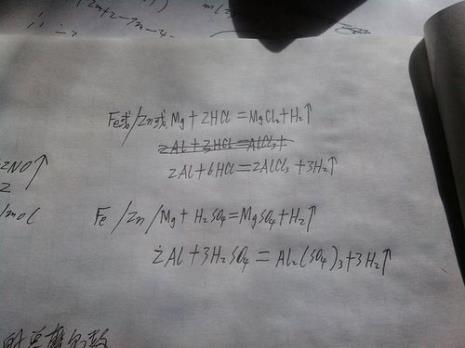 Fe或/Zn或Mg+2HCl=MgCl₂+H₂↑
2Al+3HCl=AlCl₃+
2Al+6HCl=2AlCl₃+3H₂↑
2NO↑
2
/mol
Fe/Zn/Mg+H₂SO₄=MgSO₄+H₂↑
2Al+3H₂SO₄=Al₂(SO₄)₃+3H₂↑